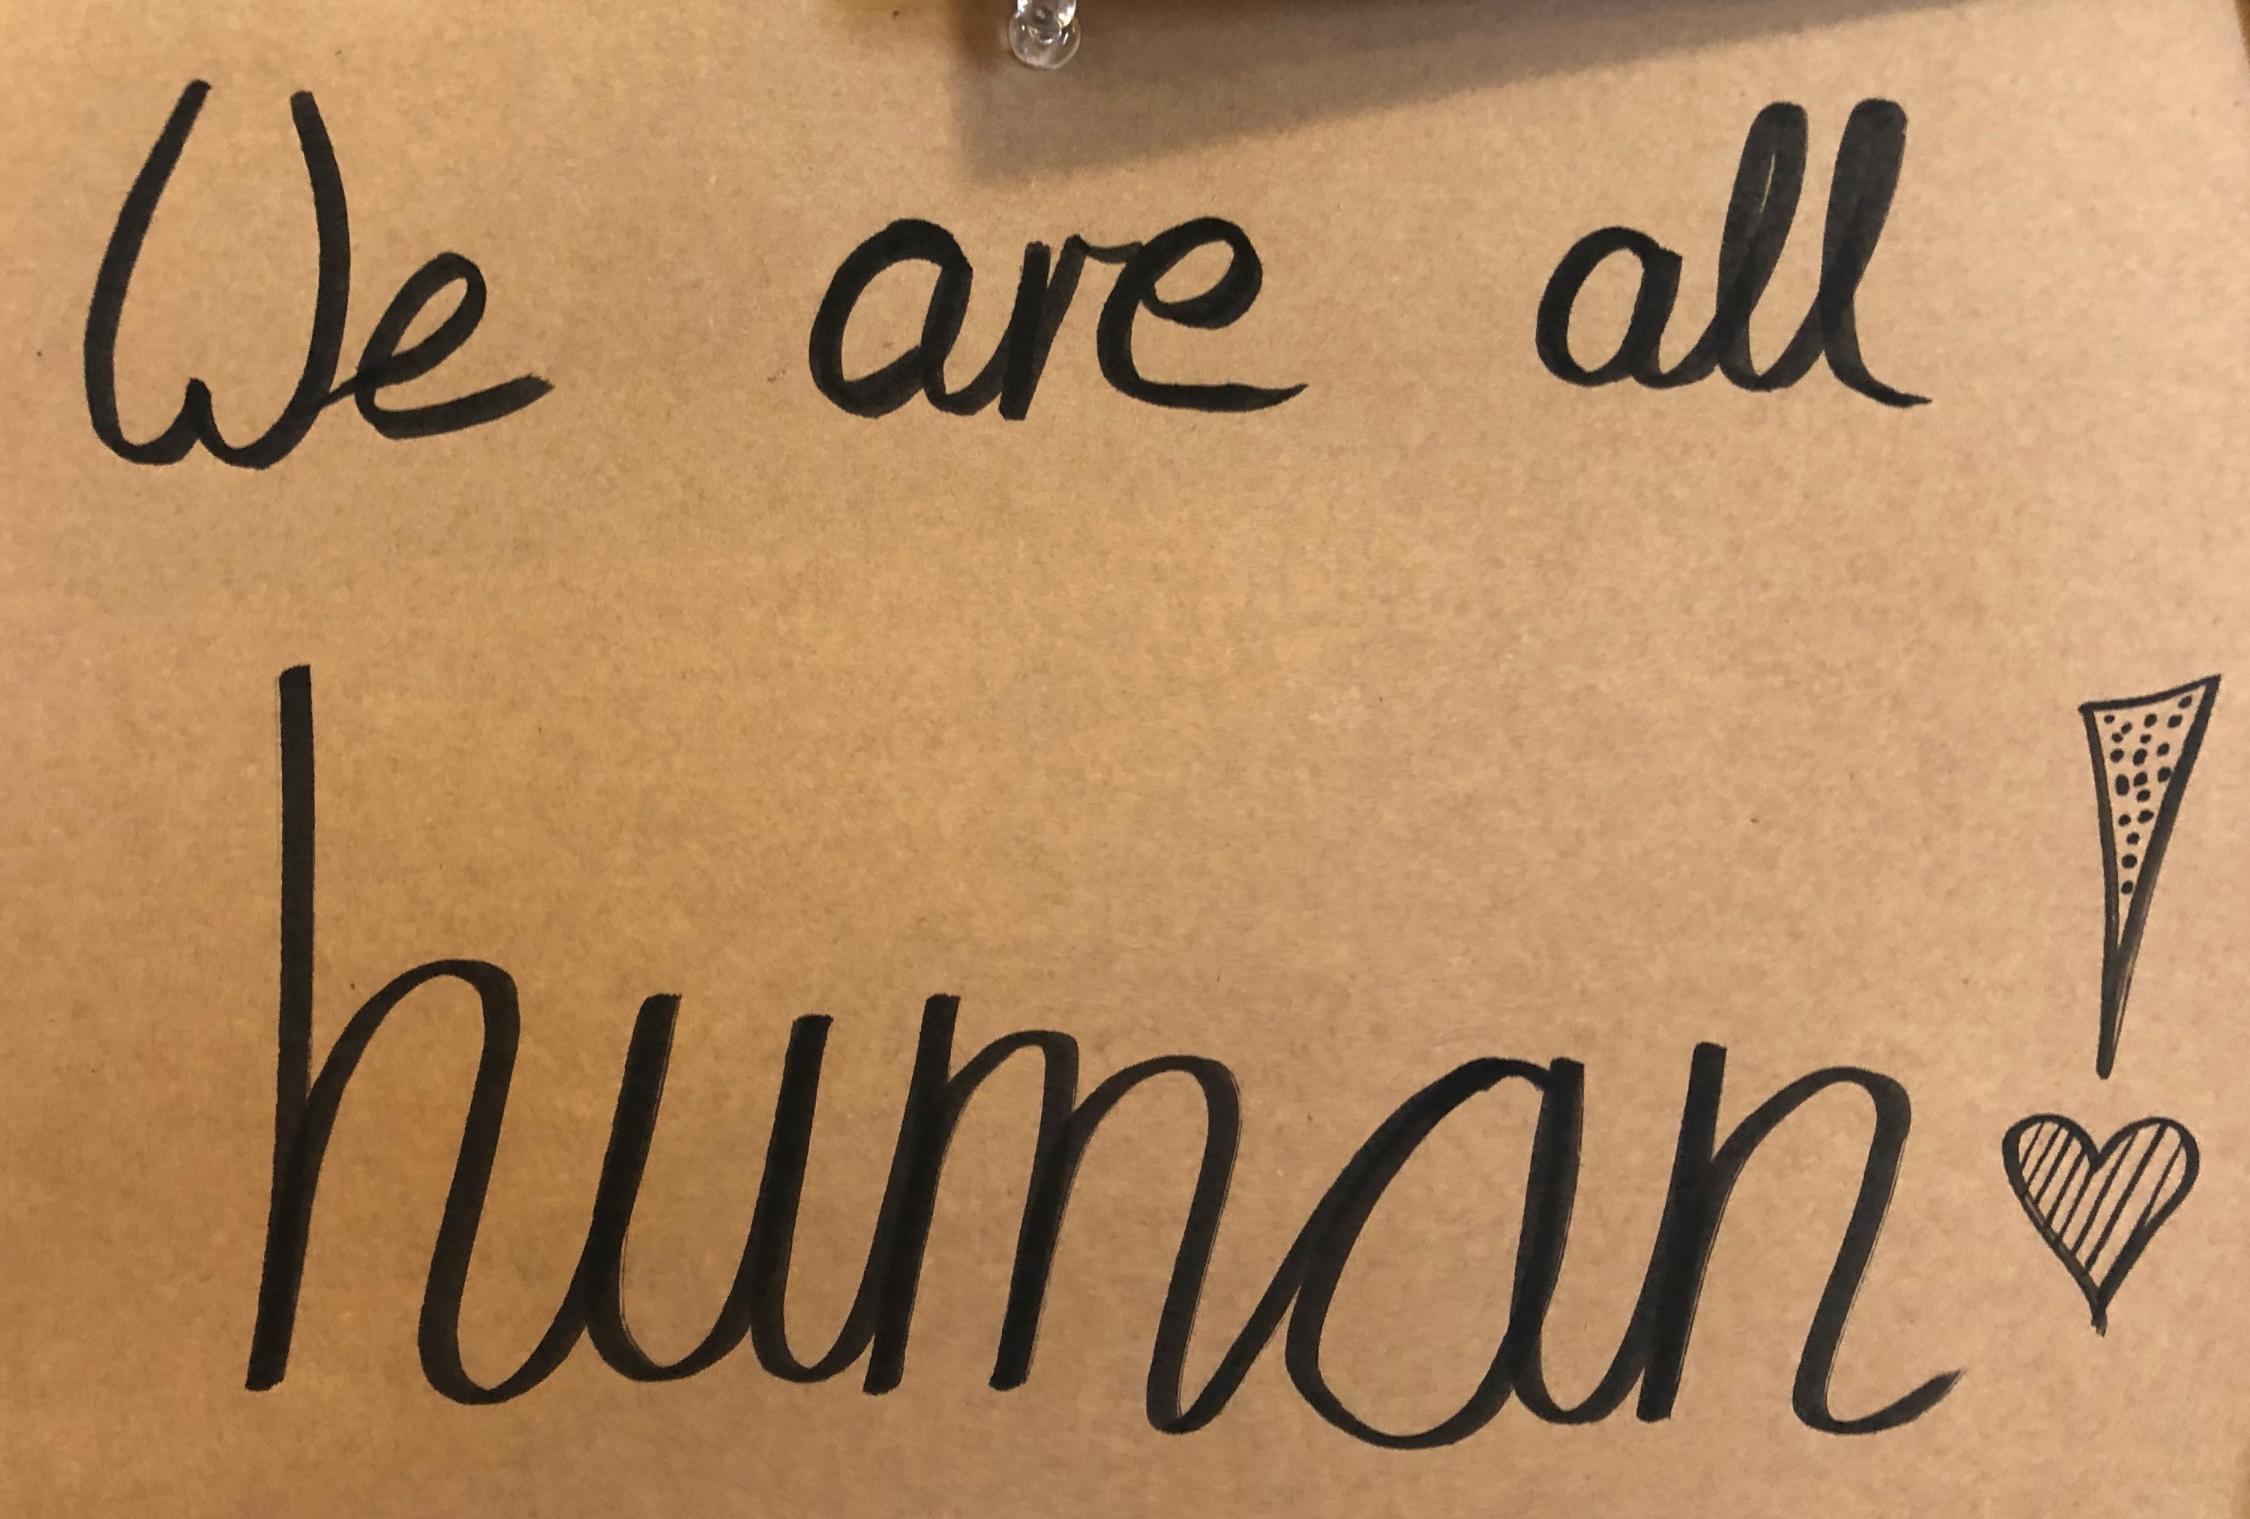 We are all
human!